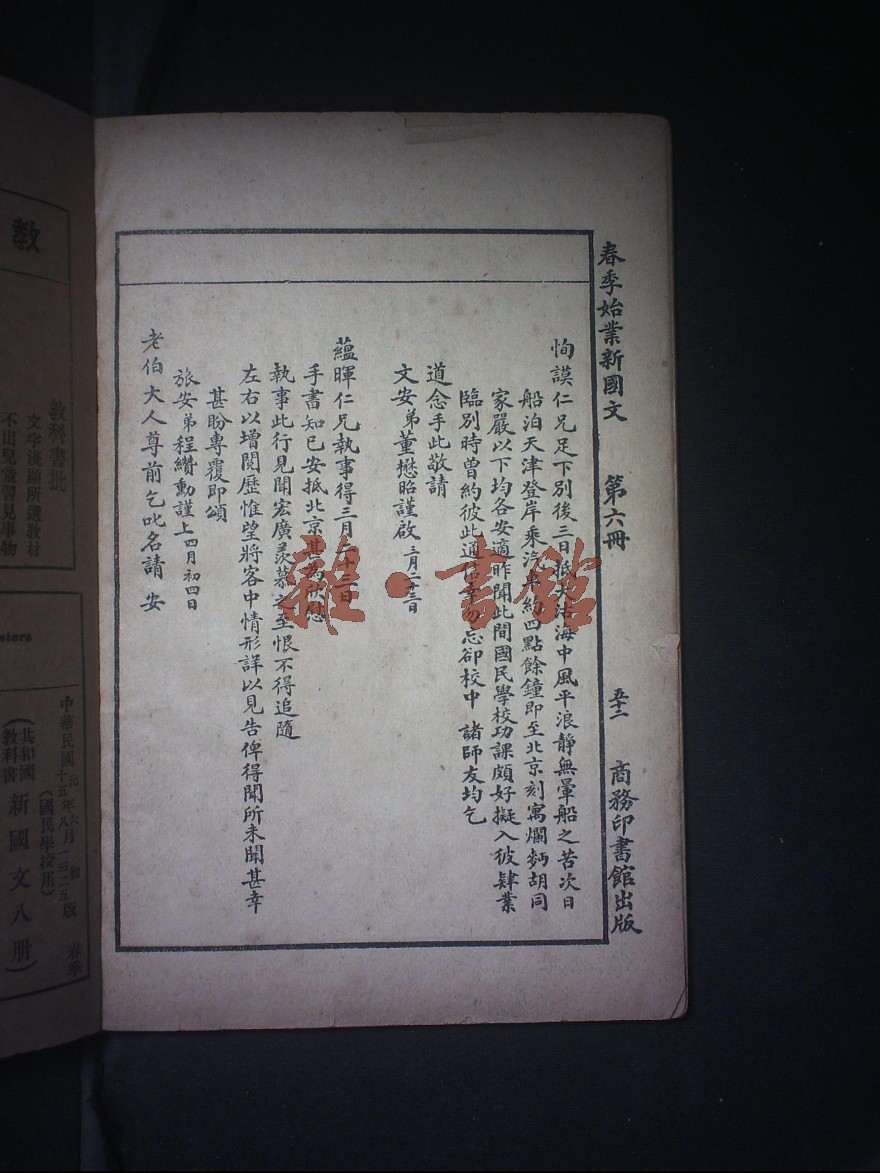 春季始業新國文 第六冊 五十二 商務印書館出版
恂謨仁兄足下別後三日抵大沽海中風平浪靜無暈船之苦次日
船泊天津登岸乘汽車約四點餘鐘即至北京刻寓爛麪胡同
家嚴以下均各安適昨聞此間國民學校功課頗好擬入彼肄業
臨別時曾約彼此通信幸勿忘卻校中 諸師友均乞
道念手此敬請
文安弟董懋昭謹啟 三月二十三日
蘊暉仁兄執事得三月二十三日
手書知已安抵北京甚為欣慰
執事此行見聞宏廣羨慕之至恨不得追隨
左右以增閱歷惟望將客中情形詳以見告俾得聞所未聞甚幸
甚盼專覆即頌
旅安弟程纘勳謹上 四月初四日
老伯大人尊前乞叱名請 安
雜·書館
教
教科書批
文字後顧所選教材
不出兒童習見事物
中華民國元年六月初版
十五年八月一三二五版
春季
(國民學校用)
(共和國教科書 新國文八冊)